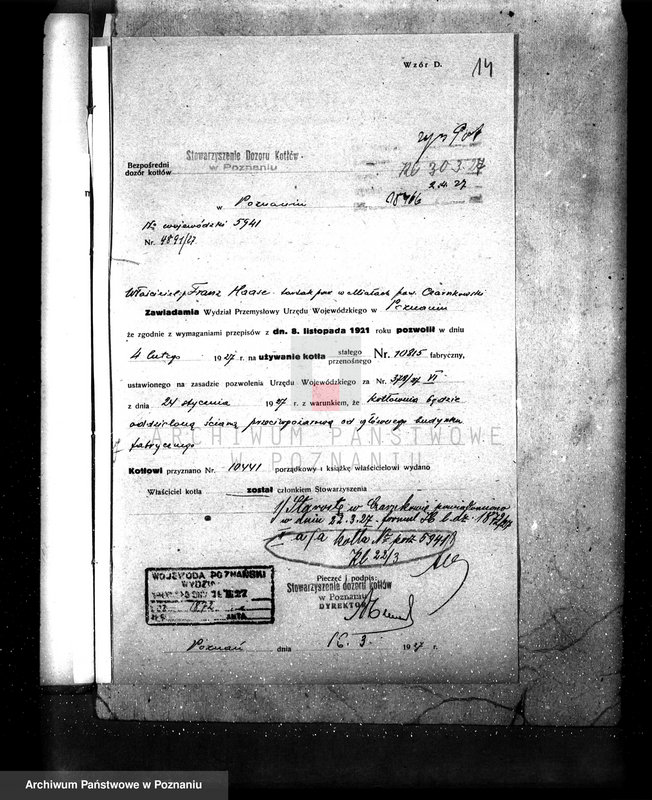 Wzór D.
14
Stowarzyszenie Dozoru Kotłów
w Poznaniu
Bezpośredni
dozór kotłów
30.3.27
2.4.27
w Poznaniu
Nr. wojewódzki 5941
Nr. 4891/27
Właściciel p. Franz Haase tartak par. w Miałach pow. Czarnkowski
Zawiadamia Wydział Przemysłowy Urzędu Wojewódzkiego w Poznaniu
że zgodnie z wymaganiami przepisów z dn. 8. listopada 1921 roku pozwolił w dniu
4 lutego 1927 r. na używanie kotła stałego Nr. 10815 fabryczny,
przenośnego
ustawionego na zasadzie pozwolenia Urzędu Wojewódzkiego za Nr. 372/27 VI
z dnia 24 stycznia 1927 r. z warunkiem, że kotłownia będzie
oddzieloną ścianą przeciwpożarową od głównego budynku
fabrycznego
ARCHIWUM PAŃSTWOWE
W POZNANIU
Kotłowi przyznano Nr. 10441 porządkowy i książkę właścicielowi wydano
Właściciel kotła został członkiem Stowarzyszenia
1/ Starostę w Czarnkowie powiadomiono
w dniu 22.3.27. formul. l. dz. 1872/27
a/a kotła Nr. 5941
22/3
WOJEWODA POZNAŃSKI
WYDZIAŁ
1872
Pieczęć i podpis:
Stowarzyszenie dozoru kotłów
w Poznaniu
DYREKTOR
Poznań dnia 16. 3. 1927 r.
Archiwum Państwowe w Poznaniu